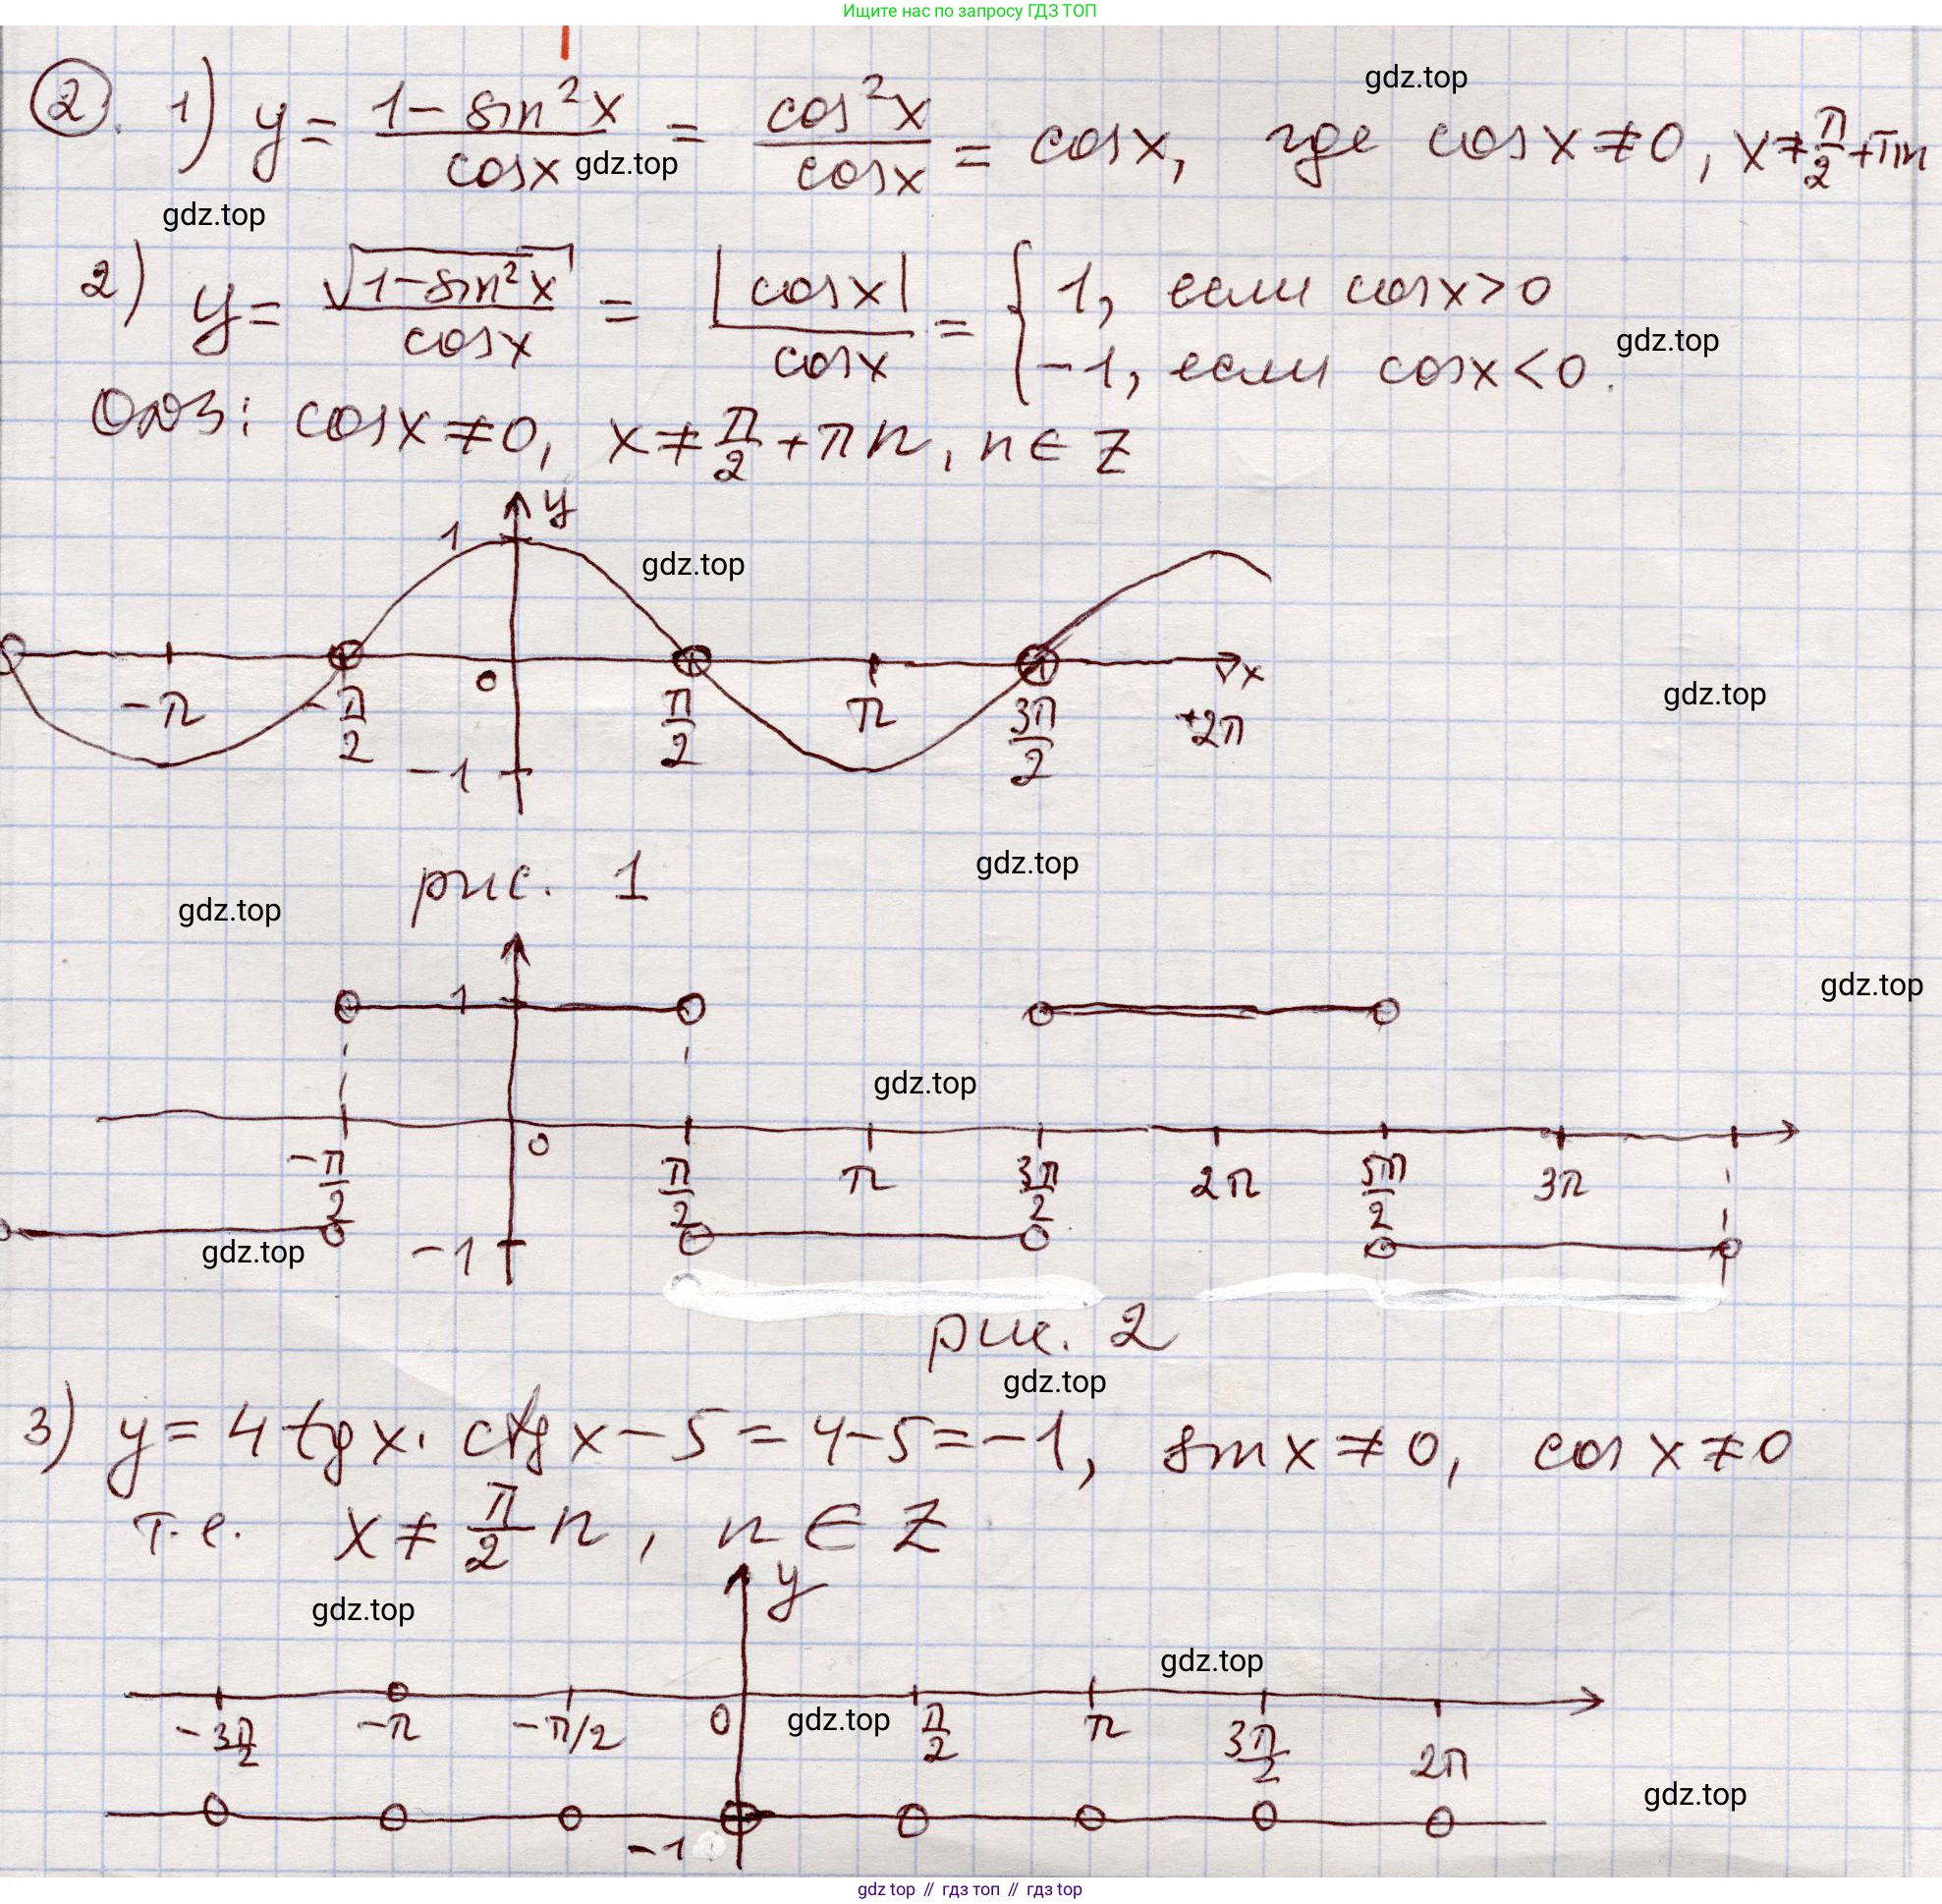 Ищите нас по запросу ГДЗ ТОП
gdz.top
2. 1) y = (1 - sin²x)/cosx = cos²x/cosx = cosx, где cosx ≠ 0, x ≠ π/2 + πn
gdz.top
gdz.top
2) y = √(1-sin²x)/cosx = |cosx|/cosx = { 1, если cosx > 0
-1, если cosx < 0.
gdz.top
ОДЗ: cosx ≠ 0, x ≠ π/2 + πn, n ∈ Z
y
1
gdz.top
0
x
-π -π/2 π/2 π 3π/2 +2π
gdz.top
-1
рис. 1
gdz.top
gdz.top
1
gdz.top
gdz.top
0
-π/2 π/2 π 3π/2 2π 5π/2 3π
gdz.top
-1
рис. 2
gdz.top
3) y = 4 tgx · ctgx - 5 = 4-5 = -1, sinx ≠ 0, cosx ≠ 0
т.е. x ≠ π/2 n, n ∈ Z
y
gdz.top
gdz.top
-3π/2 -π -π/2 0 π/2 π 3π/2 2π
gdz.top
gdz.top
-1
gdz top // гдз топ // гдз top